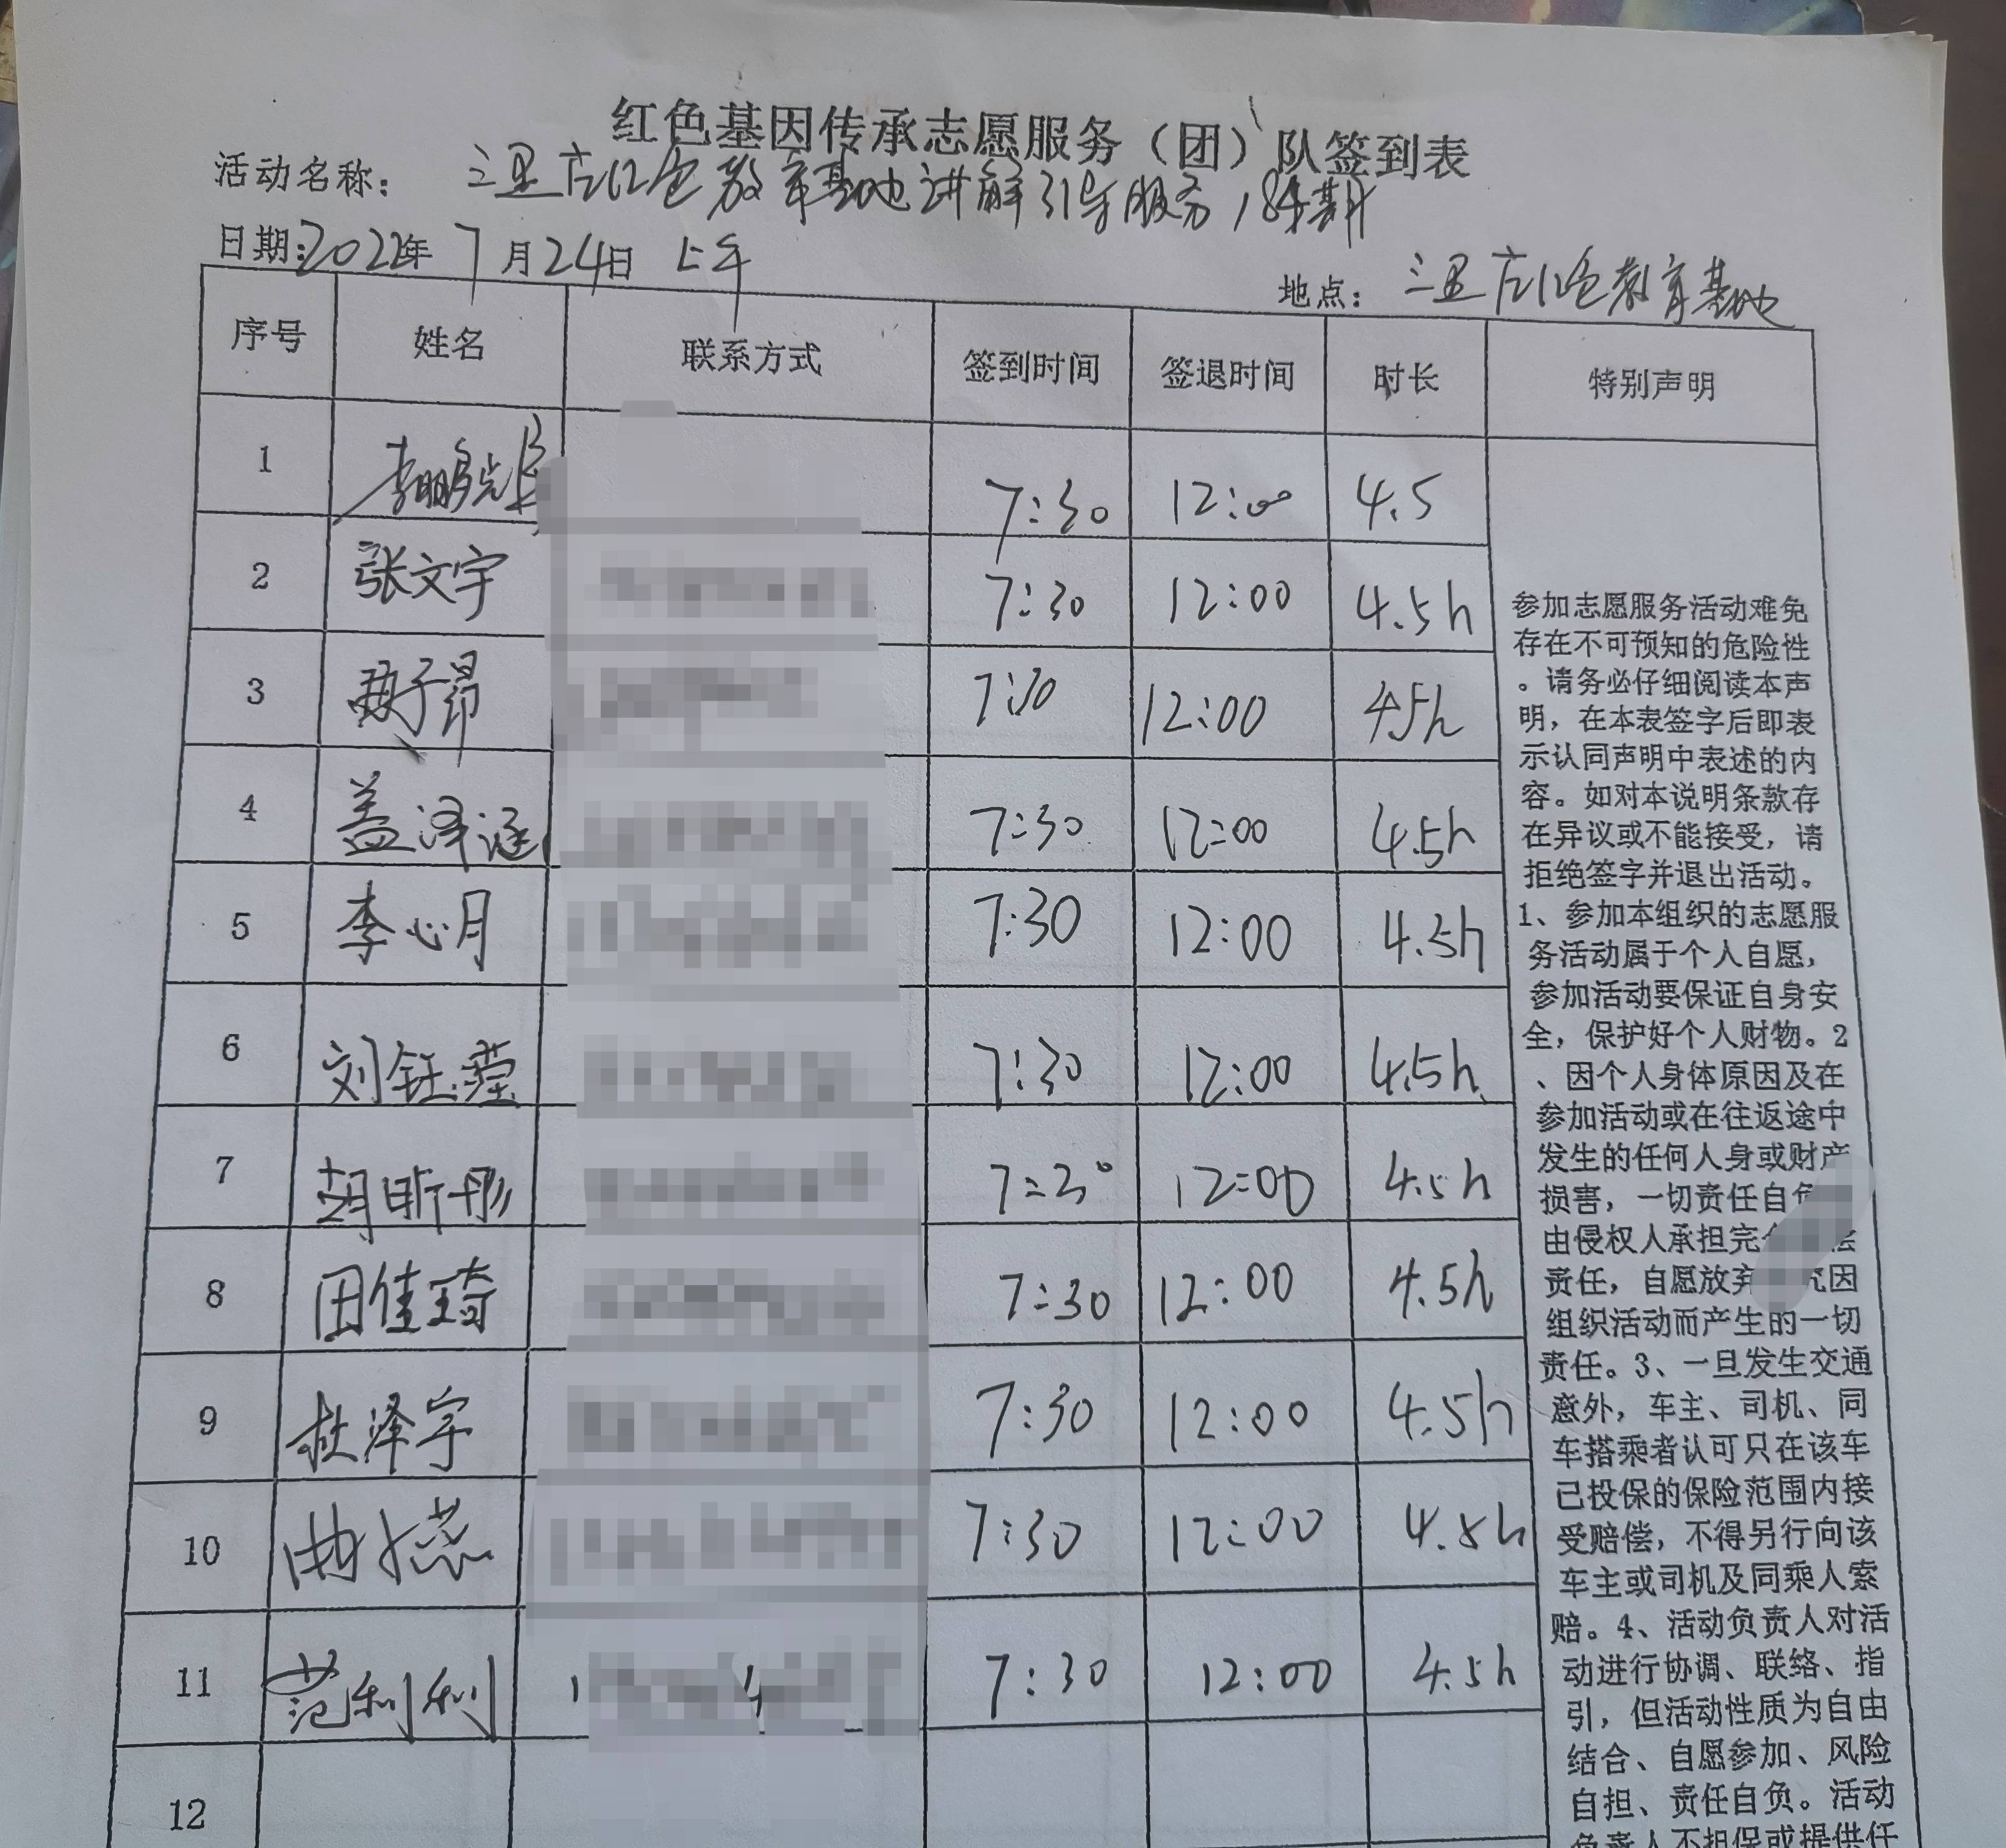 红色基因传承志愿服务（团）队签到表
活动名称： 三里庄红色教育基地讲解引导服务184期
日期：2022年 7月24日 上午
地点： 三里庄红色教育基地
序号 姓名 联系方式 签到时间 签退时间 时长 特别声明
1 7:30 12:00 4.5
2 张文宇 7:30 12:00 4.5h
3 子昂 7:30 12:00 4.5h
4 盖泽涵 7:30 12:00 4.5h
5 李心月 7:30 12:00 4.5h
6 刘钰莹 7:30 12:00 4.5h
7 昕彤 7:30 12:00 4.5h
8 田佳琦 7:30 12:00 4.5h
9 杜泽宇 7:30 12:00 4.5h
10 曲 蕊 7:30 12:00 4.5h
11 范利利 7:30 12:00 4.5h
12
参加志愿服务活动难免
存在不可预知的危险性
。请务必仔细阅读本声
明，在本表签字后即表
示认同声明中表述的内
容。如对本说明条款存
在异议或不能接受，请
拒绝签字并退出活动。
1、参加本组织的志愿服
务活动属于个人自愿，
参加活动要保证自身安
全，保护好个人财物。2
、因个人身体原因及在
参加活动或在往返途中
发生的任何人身或财产
损害，一切责任自负
由侵权人承担完全 偿
责任，自愿放弃 究因
组织活动而产生的一切
责任。3、一旦发生交通
意外，车主、司机、同
车搭乘者认可只在该车
已投保的保险范围内接
受赔偿，不得另行向该
车主或司机及同乘人索
赔。4、活动负责人对活
动进行协调、联络、指
引，但活动性质为自由
结合、自愿参加、风险
自担、责任自负。活动
负责人不担保或提供任